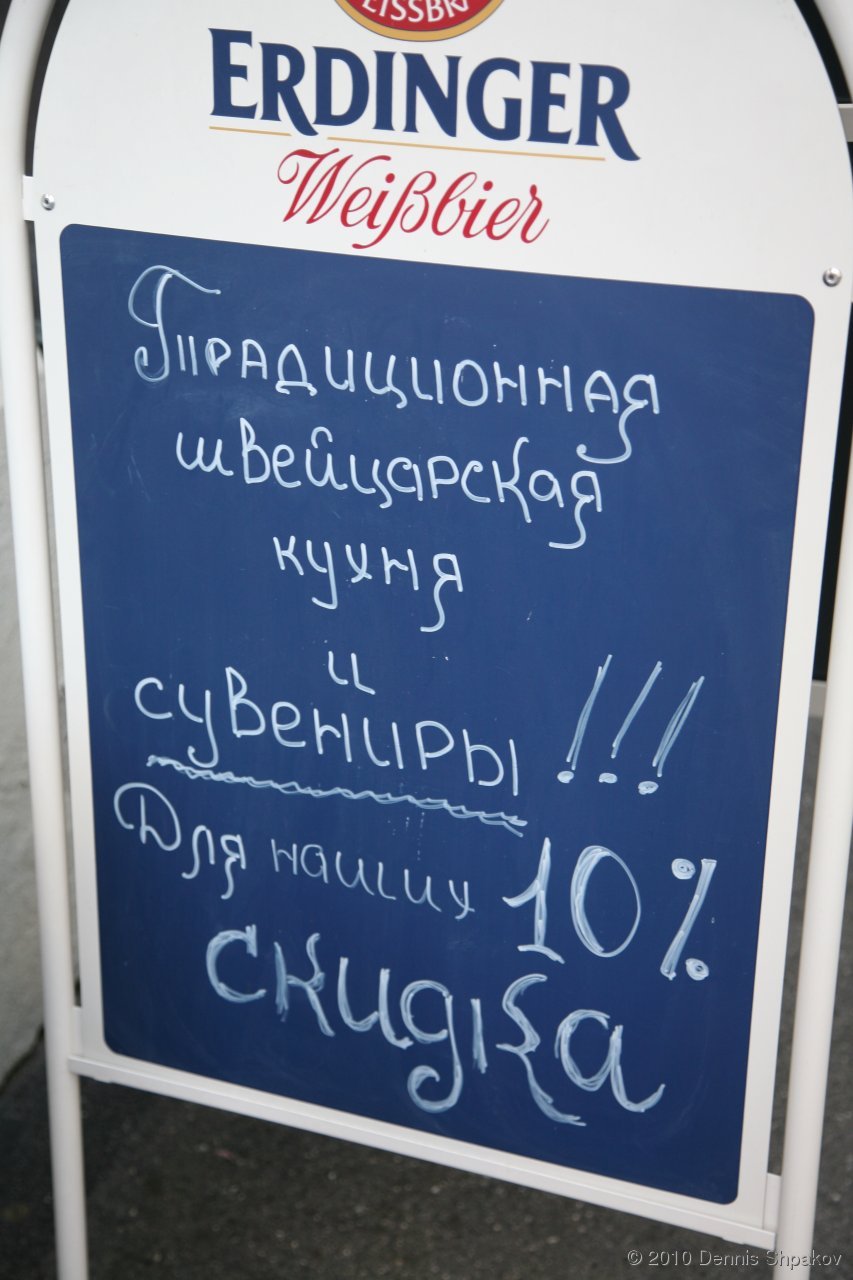 EISSBR
ERDINGER
Weißbier
Традиционная
швейцарская
кухня
и
сувениры !!!
Для наших 10%
скидка
© 2010 Dennis Shpakov